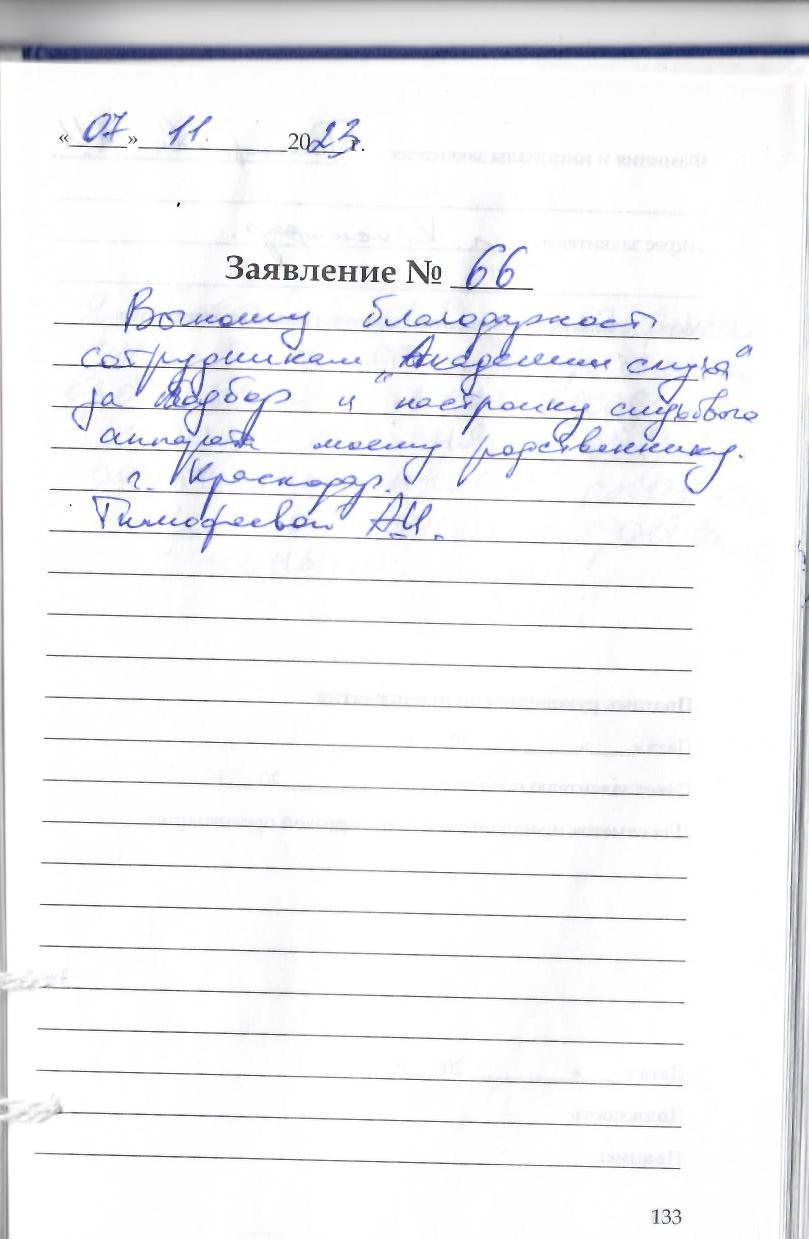 «07» 11. 2023 г.
Заявление № 66
Выношу благодарность
сотрудникам „Академии слуха“
за подбор и настройку слухового
аппарата моему родственнику.
г. Краснодар.
Тимофеевой А.И.
133